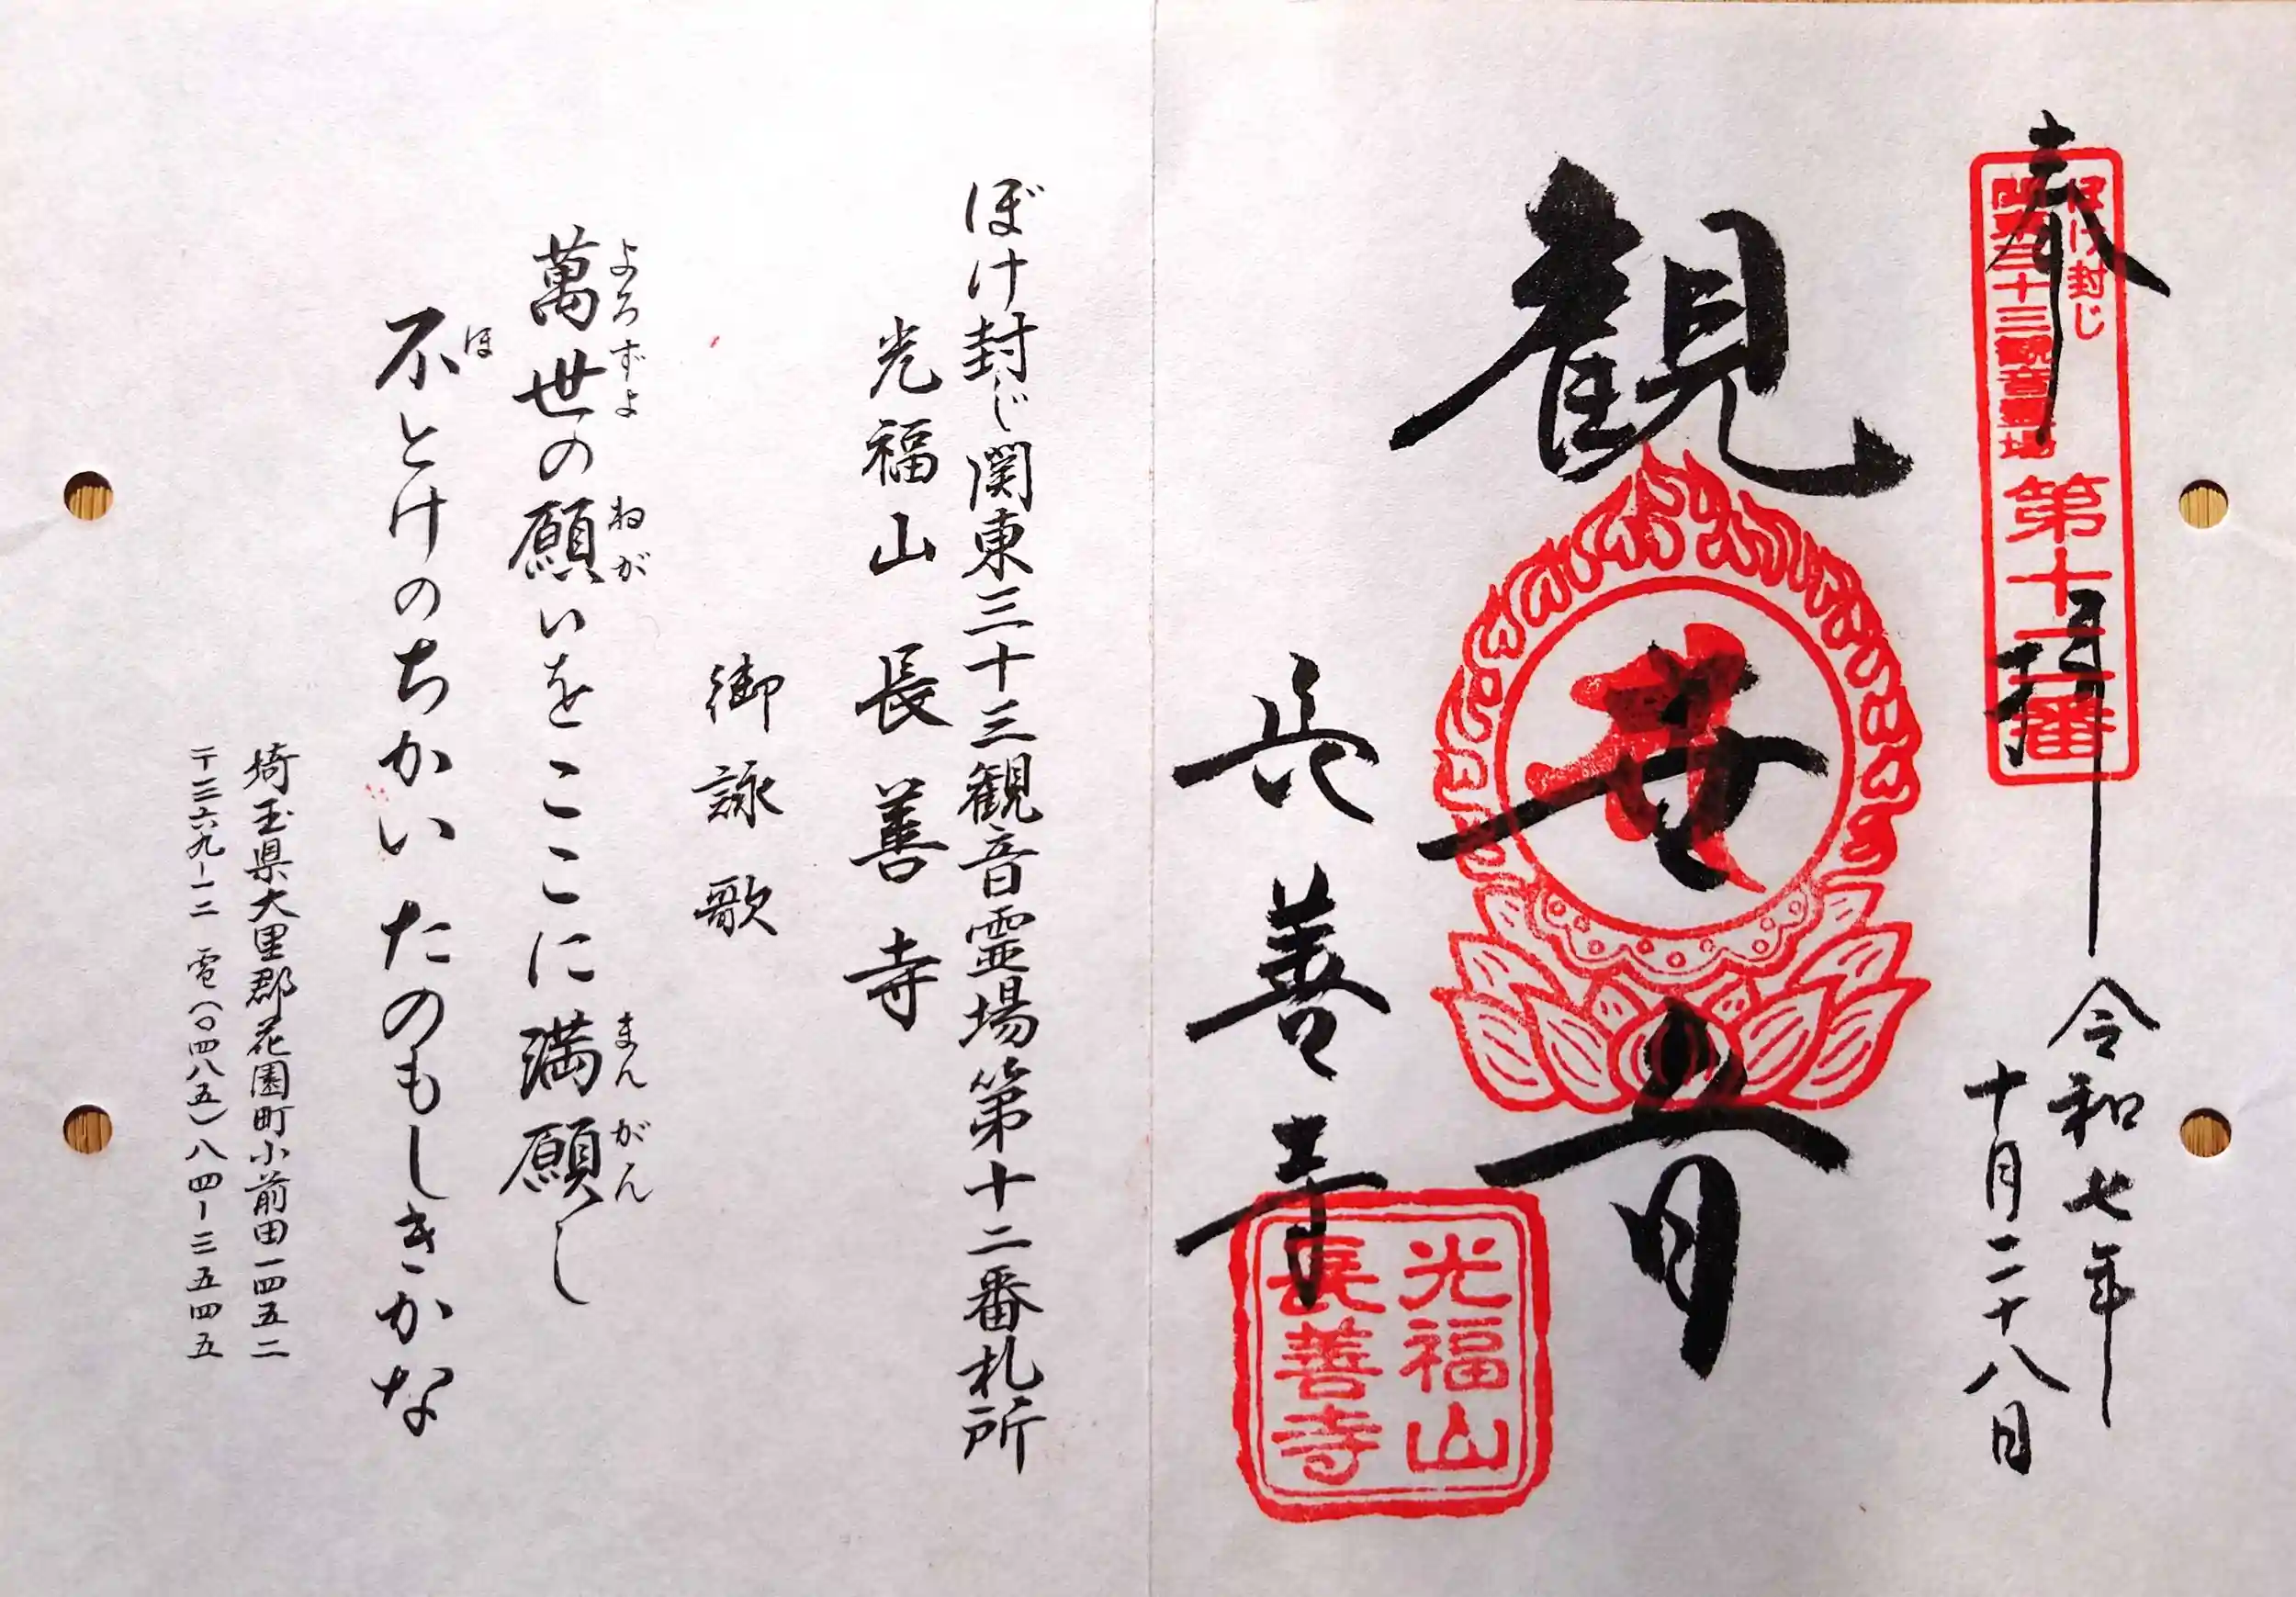 奉拝
ぼけ封じ
関東三十三観音霊場
第十二番
令和七年
十月二十八日
観世音
長善寺
光福山
長善寺
ぼけ封じ関東三十三観音霊場第十二番札所
光福山 長善寺
御詠歌
よろずよ ねが まんがん
萬世の願いをここに満願し
ほ
不とけのちかいたのもしきかな
埼玉県大里郡花園町小前田一四五二
〒三六九-一二 電(〇四八五)八四-三五四五